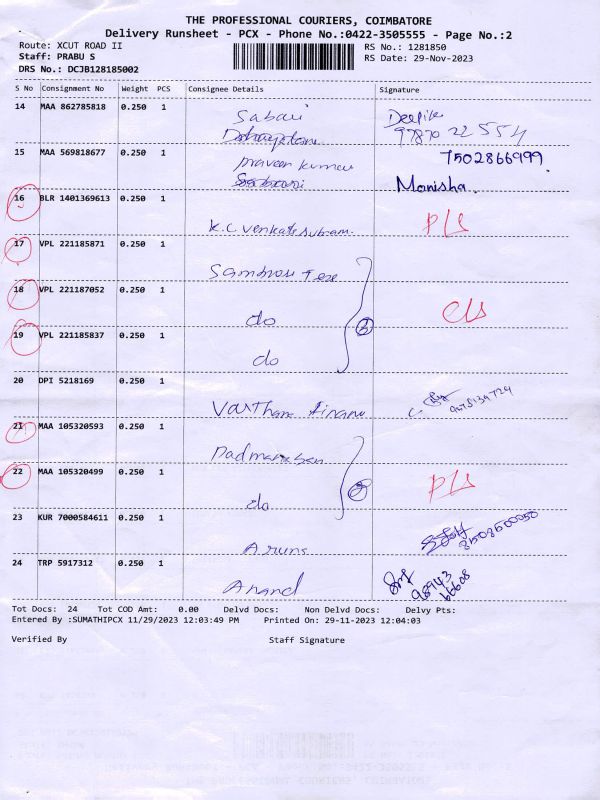 THE PROFESSIONAL COURIERS, COIMBATORE
Delivery Runsheet - PCX - Phone No.:0422-3505555 - Page No.:2
Route: XCUT ROAD II
RS No.: 1281850
Staff: PRABU S
RS Date: 29-Nov-2023
DRS No.: DCJB128185002
S No Consignment No Weight PCS Consignee Details Signature
14 MAA 862785818 0.250 1
Sabari
Deepika
97870 22554
15 MAA 569818677 0.250 1
7502866999
praveen kumar
Monisha.
16 BLR 1401369613 0.250 1
K.C. Venkatasubram. PLS
17 VPL 221185871 0.250 1
18 VPL 221187052 0.250 1
do
19 VPL 221185837 0.250 1
3
do
20 DPI 5218169 0.250 1
Varthana Finance
21 MAA 105320593 0.250 1
22 MAA 105320499 0.250 1
PLS
do
23 KUR 7000584611 0.250 1
Aruns
24 TRP 5917312 0.250 1
Anand
98943
66608
Tot Docs: 24 Tot COD Amt: 0.00 Delvd Docs: Non Delvd Docs: Delvy Pts:
Entered By :SUMATHIPCX 11/29/2023 12:03:49 PM Printed On: 29-11-2023 12:04:03
Verified By Staff Signature